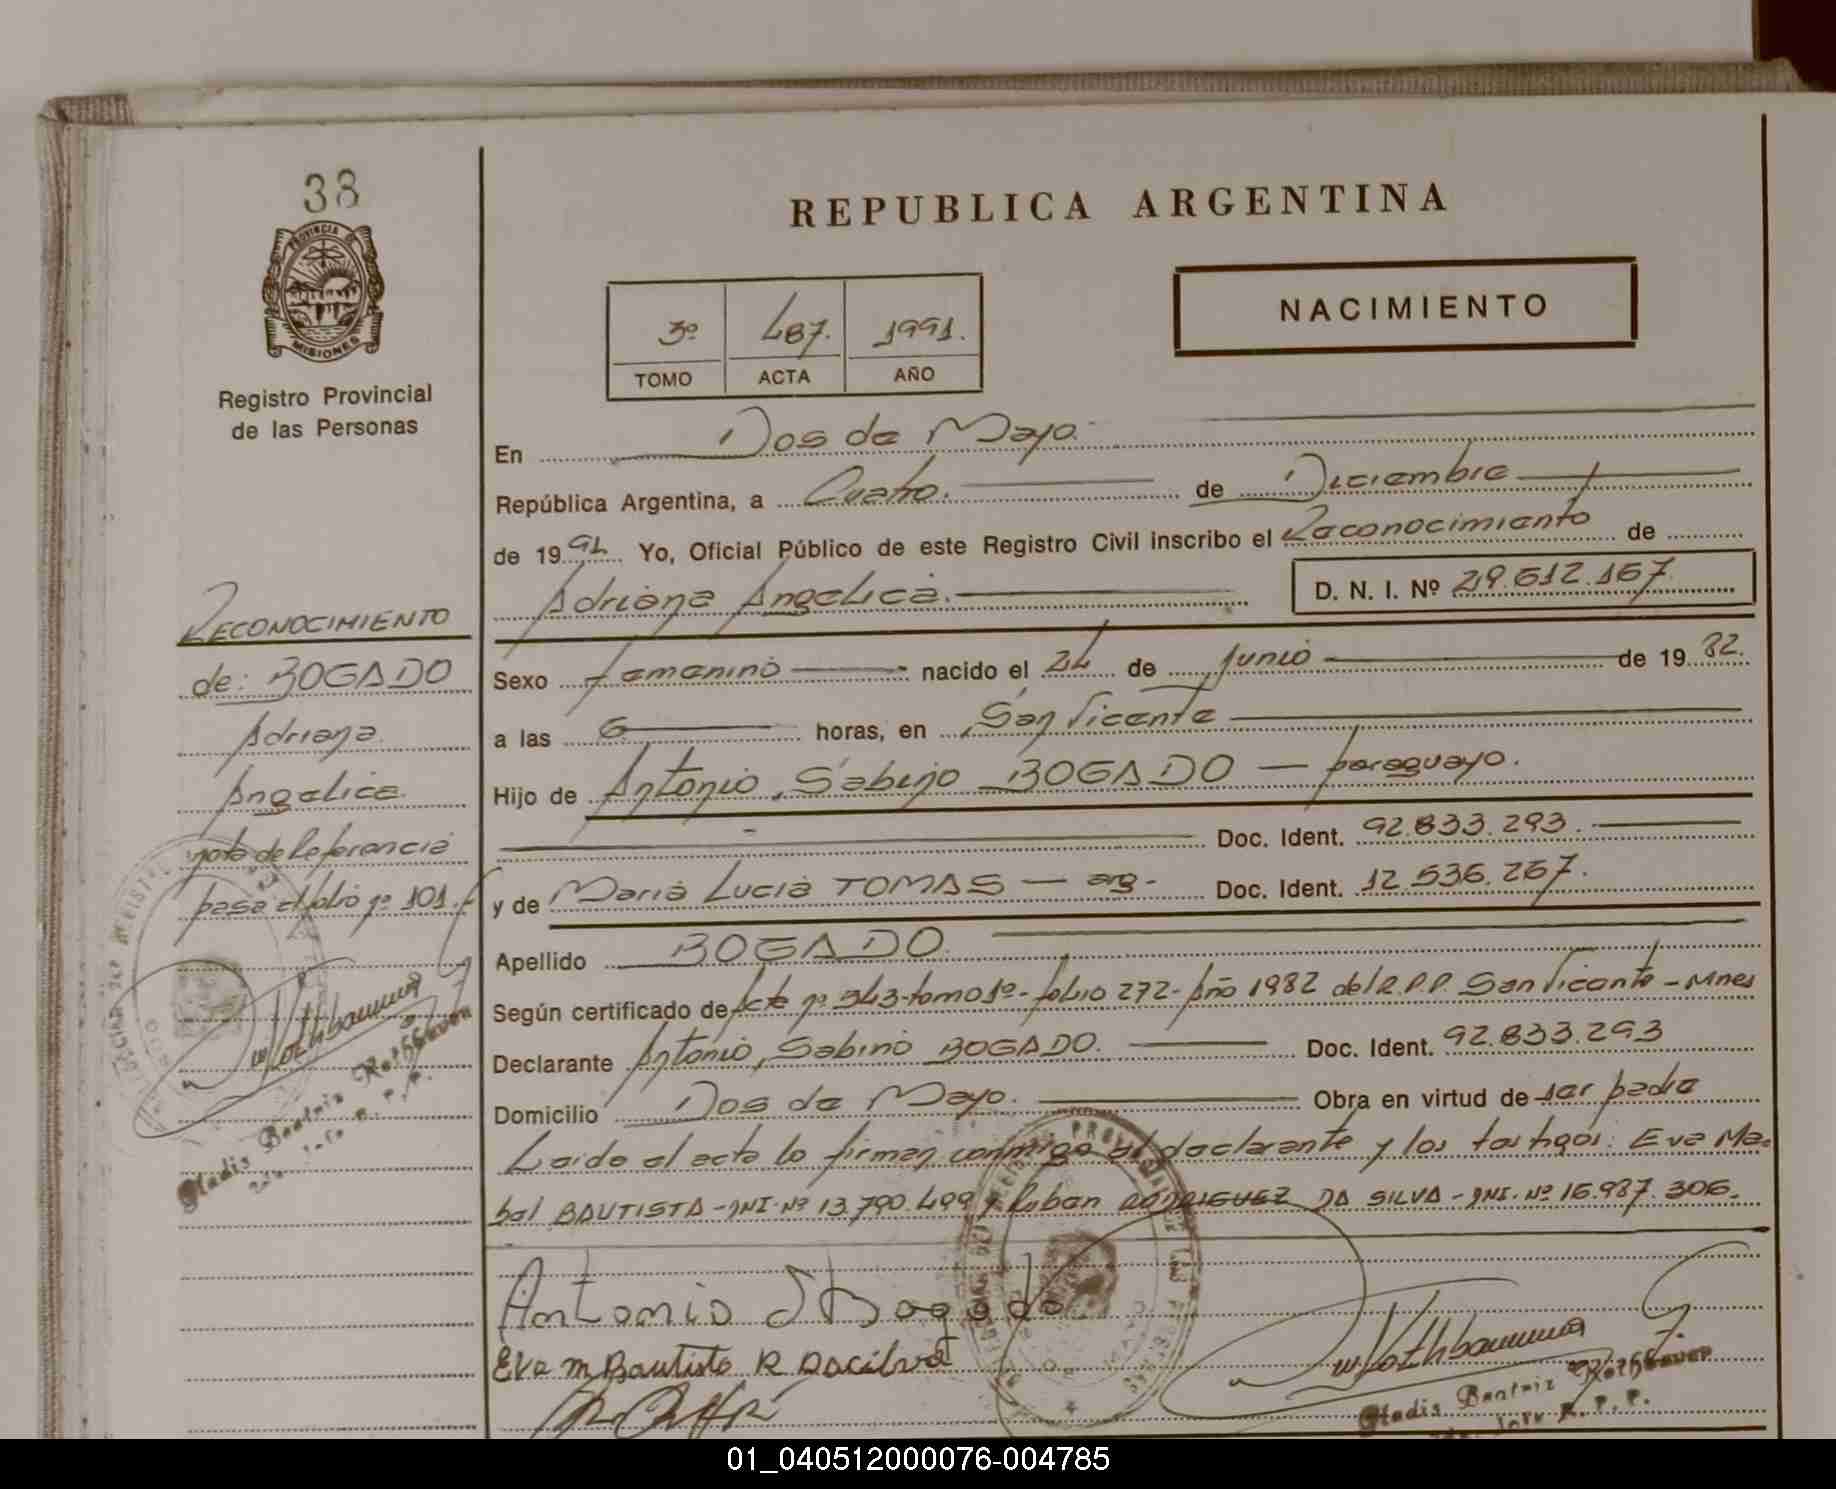 38
PROVINCIA DE
MISIONES
Registro Provincial
de las Personas
REPUBLICA ARGENTINA
NACIMIENTO
3º 487. 1991.
TOMO ACTA AÑO
En Dos de Mayo.
República Argentina, a Cuatro. de Diciembre
de 1991. Yo, Oficial Público de este Registro Civil inscribo el Reconocimiento de
Adriana Angelica. D. N. I. Nº 29.612.167
Sexo femenino nacido el 24 de junio de 1982.
a las 6 horas, en San Vicente
Hijo de Antonio, Sabino BOGADO — paraguayo.
Doc. Ident. 92.833.293.
y de Maria Lucia TOMAS — arg- Doc. Ident. 12.536.267.
Apellido BOGADO.
Según certificado de Acta nº 343-tomo 1º-folio 272-Año 1982 del R.P.P. San Vicente - Mnes
Declarante Antonio, Sabino BOGADO. Doc. Ident. 92.833.293
Domicilio Dos de Mayo. Obra en virtud de ser padre
Leida el acta lo firman conmigo el declarante y los testigos: Eva Ma-
bel BAUTISTA-DNI-Nº 13.790.499 y Ruben RODRIGUEZ DA SILVA-DNI.Nº 16.987.306.
Antonio S Bogado
Eva M Bautista R Dacilva
Gladis Beatriz
R. P. P.
RECONOCIMIENTO
de: BOGADO
Adriana
Angelica.
nota de Referencia
pasa al folio nº 101.
Gladis Beatriz
R. P. P.
01_040512000076-004785